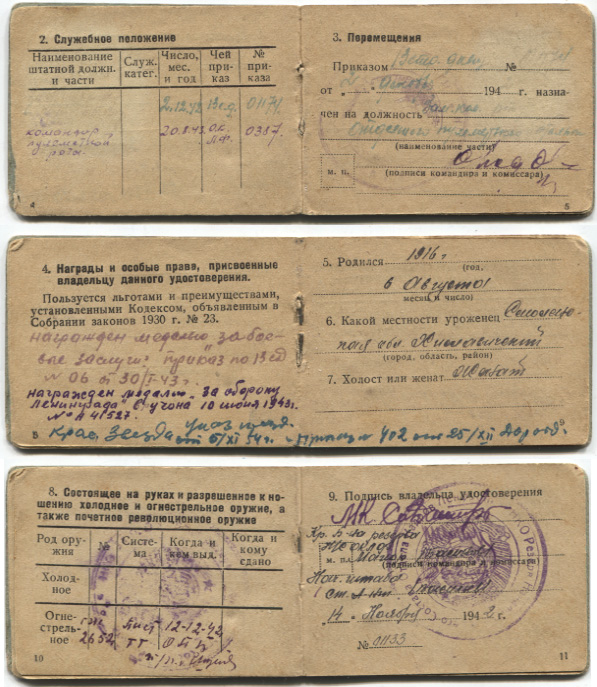 2. Служебное положение
Наименование штатной должн. и части
Служ. катег.
Число, мес. и год
Чей приказ
№ приказа
2.12.42 13 с.д. 01171
командир пулеметной роты
20.8.43 О.К. Л.Ф. 0317.
4
3. Перемещения
Приказом №
от „ “ 194 г. назна-
чен на должность
(наименование части)
м. п.
(подписи командира и комиссара)
5
4. Награды и особые права, присвоенные
владельцу данного удостоверения.
Пользуется льготами и преимуществами,
установленными Кодексом, объявленным в
Собрании законов 1930 г. № 23.
награжден медалью за бое-
вые заслуги приказ по 13 сд
№ 06 от 30/I-43 г.
награжден медалью „За оборону
Ленинграда“ 10 июня 1943г.
№ А 41527.
8
Крас. Звезда от 5/XI 54г. 402 от 25/XII
5. Родился 1916 г
(год,
6 Августа
месяц и число)
6. Какой местности уроженец Смоленс-
кая обл. Хиславичский
(город, область, район)
7. Холост или женат Женат
9
8. Состоящее на руках и разрешенное к но-
шению холодное и огнестрельное оружие, а
также почетное революционное оружие
Род ору-
жия
№
Систе-
ма
Когда и
кем выд.
Когда и
кому
сдано
Холод-
ное
Огне-
стрель-
ное
2652
Пист
ТТ
12-12-42
10
9. Подпись владельца удостоверения
м. п.
(подписи командира и комиссара)
Нач. штаба
14 Ноября 1942 г.
№ 01133
11